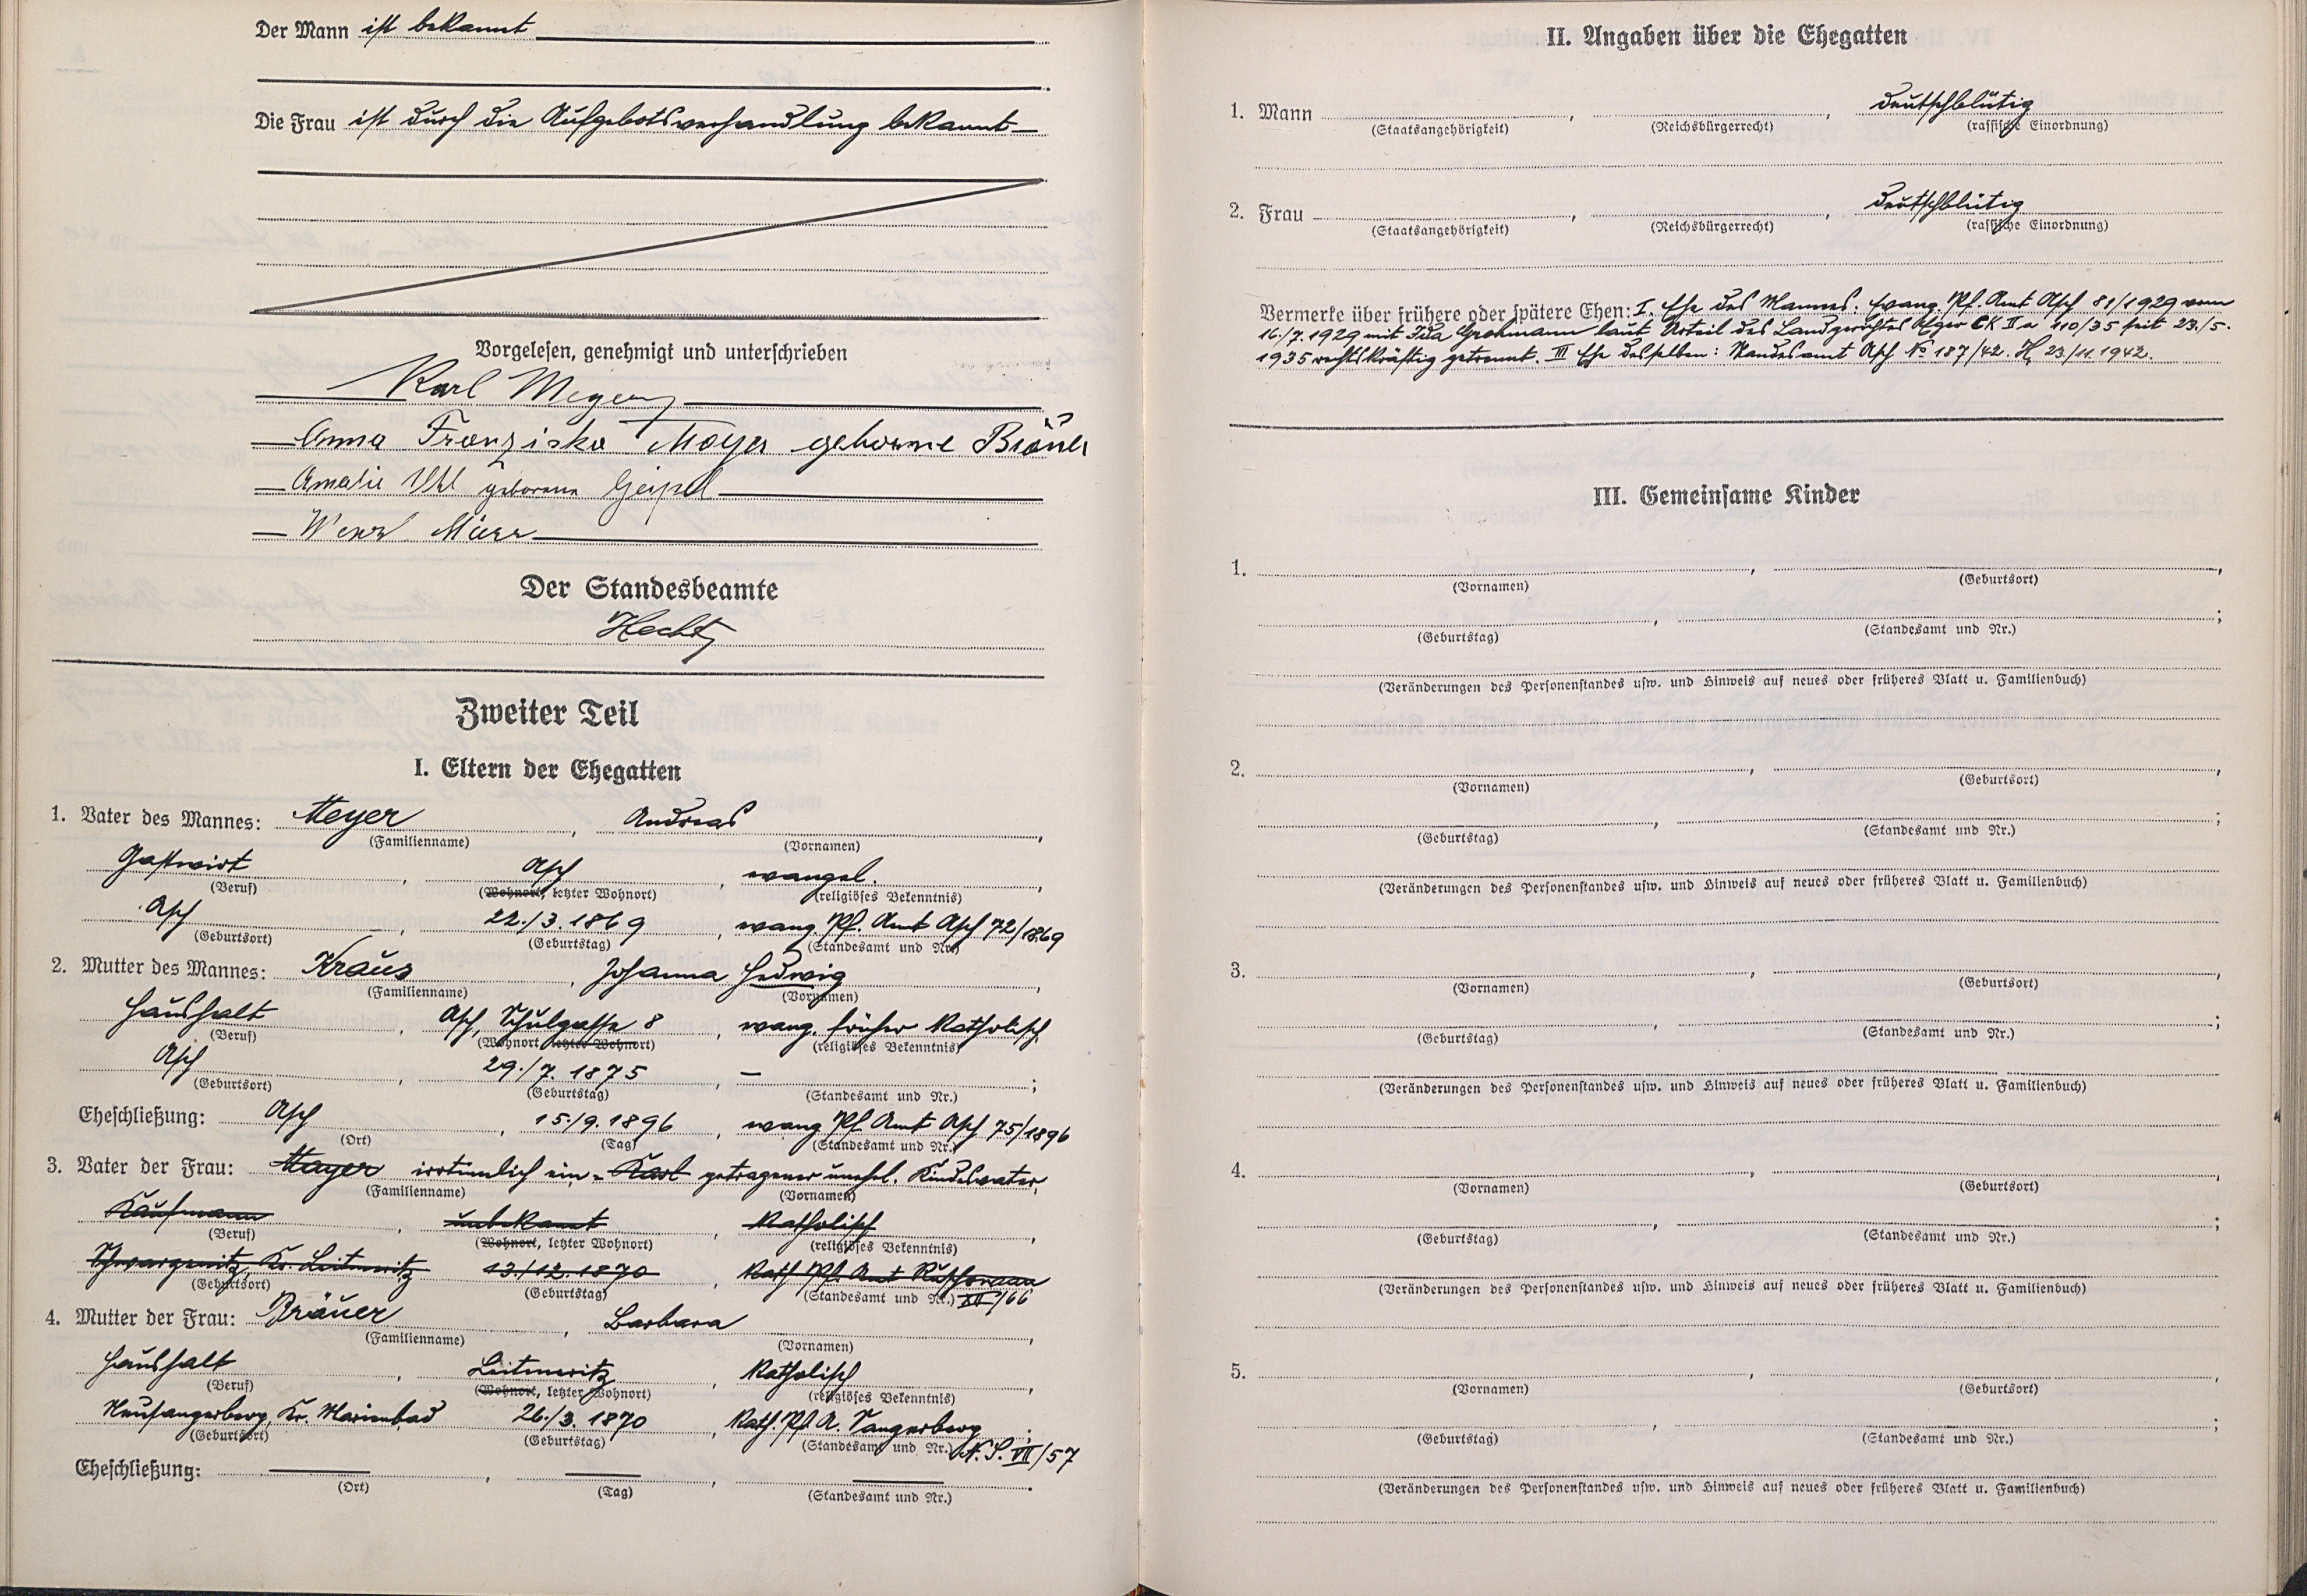 Der Mann ist bekannt
Die Frau ist durch die Aufgebotsverhandlung bekannt
Vorgelesen, genehmigt und unterschrieben
Karl Meyer
Anna Franziska Mayer geborne Bräuer
Amalie Uhl geborene Geipel
Wenzl
Der Standesbeamte
Hecht
Zweiter Teil
I. Eltern der Ehegatten
1. Vater des Mannes: Meyer, Andreas,
(Familienname) (Vornamen)
Gastwirt, Asch, evangel.,
(Beruf) (Wohnort, letzter Wohnort) (religiöses Bekenntnis)
Asch, 22./3. 1869, evang. Pf. Amt Asch 72/1869
(Geburtsort) (Geburtstag) (Standesamt und Nr.)
2. Mutter des Mannes: Kraus, Johanna Hedwig,
(Familienname) (Vornamen)
Haushalt, Asch, Schulgasse 8, evang. früher katholisch
(Beruf) (Wohnort, letzter Wohnort) (religiöses Bekenntnis)
Asch, 29./7. 1875, — ;
(Geburtsort) (Geburtstag) (Standesamt und Nr.)
Eheschließung: Asch, 15./9. 1896, evang Pf. Amt Asch 75/1896
(Ort) (Tag) (Standesamt und Nr.)
3. Vater der Frau: Mayer irrtümlich ein- Karl getragener unehel. Kindesvater,
(Familienname) (Vornamen)
Kaufmann, unbekannt, katholisch,
(Beruf) (Wohnort, letzter Wohnort) (religiöses Bekenntnis)
Kr. Leitmeritz 13./12. 1870, kath Pf. Amt
(Geburtsort) (Geburtstag) (Standesamt und Nr.) XII/66
4. Mutter der Frau: Bräuer, Barbara,
(Familienname) (Vornamen)
Haushalt, Leitmeritz, katholisch,
(Beruf) (Wohnort, letzter Wohnort) (religiöses Bekenntnis)
Neuhangerberg, Kr. Marienbad 26./3. 1870, kath. Pf. A. Tangerberg;
(Geburtsort) (Geburtstag) (Standesamt und Nr.) N. S. VII/57
Eheschließung: —, —, —.
(Ort) (Tag) (Standesamt und Nr.)
II. Angaben über die Ehegatten
1. Mann , , deutschblütig
(Staatsangehörigkeit) (Reichsbürgerrecht) (rassische Einordnung)
2. Frau , , deutschblütig
(Staatsangehörigkeit) (Reichsbürgerrecht) (rassische Einordnung)
Vermerke über frühere oder spätere Ehen: I. Ehe des Mannes: Evang. Pf. Amt Asch 81/1929 vom
16./7. 1929 mit Ida Grohmann laut Urteil des Landgerichtes Eger CK II a 110/35 seit 23./5.
1935 rechtskräftig getrennt. III Ehe desselben: Standesamt Asch No 187/42. H, 23/11. 1942.
III. Gemeinsame Kinder
1. , ,
(Vornamen) (Geburtsort)
, ;
(Geburtstag) (Standesamt und Nr.)
(Veränderungen des Personenstandes usw. und Hinweis auf neues oder früheres Blatt u. Familienbuch)
2. , ,
(Vornamen) (Geburtsort)
, ;
(Geburtstag) (Standesamt und Nr.)
(Veränderungen des Personenstandes usw. und Hinweis auf neues oder früheres Blatt u. Familienbuch)
3. , ,
(Vornamen) (Geburtsort)
, ;
(Geburtstag) (Standesamt und Nr.)
(Veränderungen des Personenstandes usw. und Hinweis auf neues oder früheres Blatt u. Familienbuch)
4. , ,
(Vornamen) (Geburtsort)
, ;
(Geburtstag) (Standesamt und Nr.)
(Veränderungen des Personenstandes usw. und Hinweis auf neues oder früheres Blatt u. Familienbuch)
5. , ,
(Vornamen) (Geburtsort)
, ;
(Geburtstag) (Standesamt und Nr.)
(Veränderungen des Personenstandes usw. und Hinweis auf neues oder früheres Blatt u. Familienbuch)